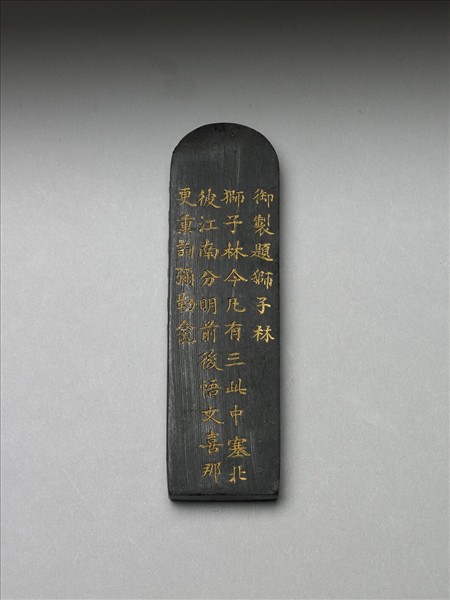 御製題獅子林
獅子林今凡有三此中塞北
彼江南分明前後悟文喜那
更重詢彌勒龕